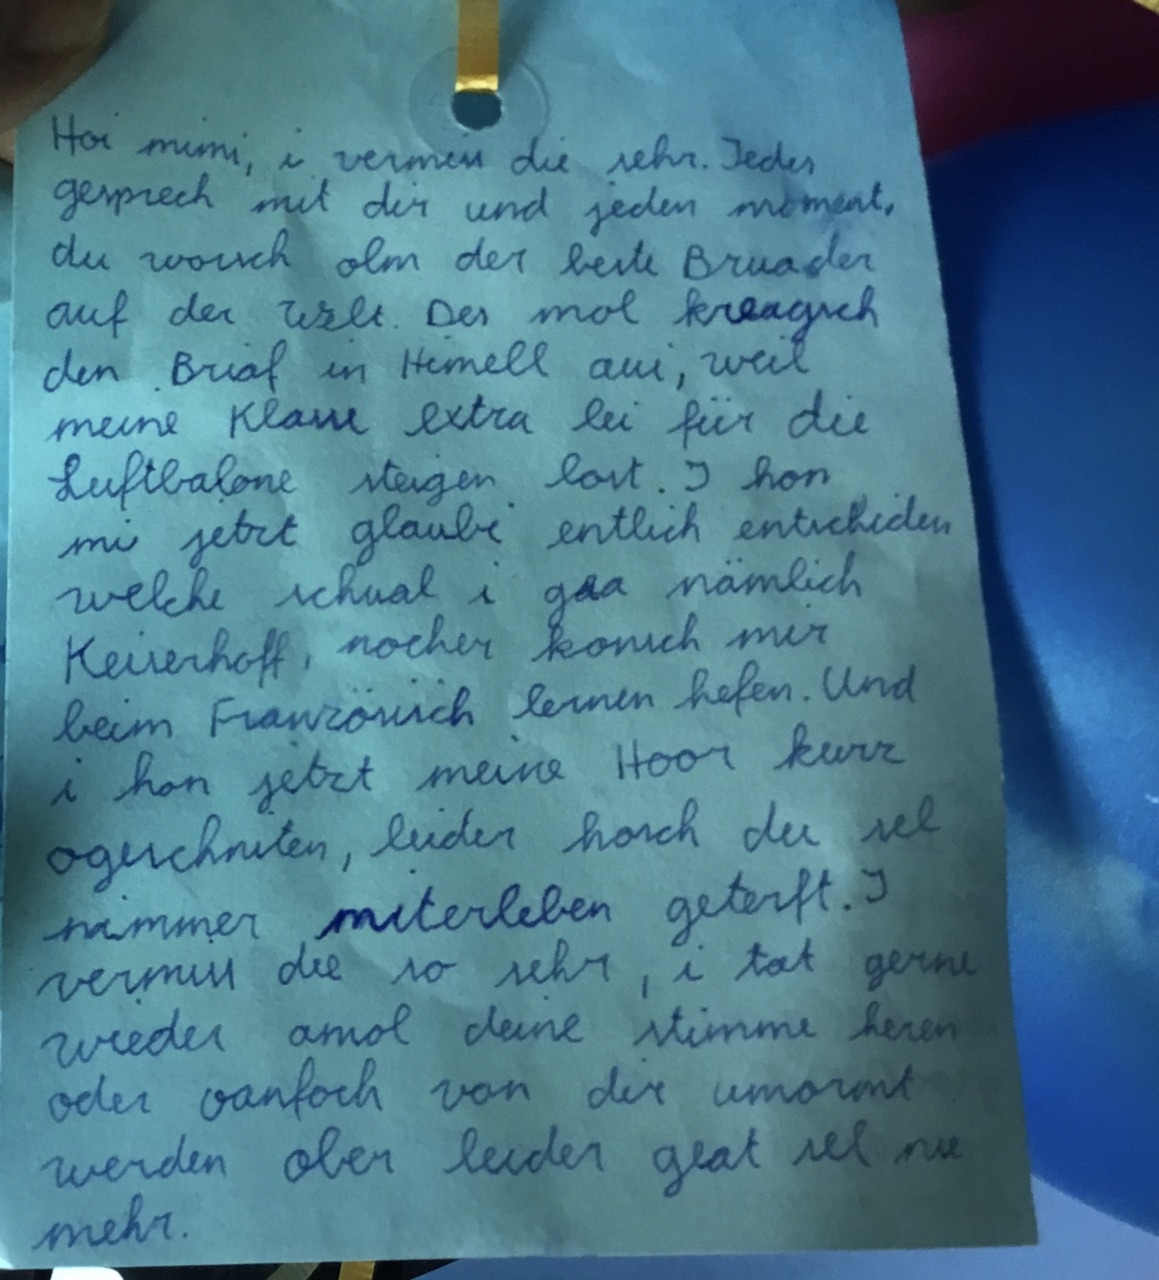 Hoi mimi, i vermiss die sehr. Jedes
gesprech mit dir und jeden moment,
du worsch olm der beste Bruader
auf der Welt. Des mol kreagsch
den Briaf in Himell aui, weil
meine Klasse extra lei für die
Luftbalone steigen lost. I hon
mi jetzt glaubi entlich entscheiden
welche schual i gaa nämlich
Keiserhoff, nocher konsch mir
beim Französisch lernen hefen. Und
i hon jetzt meine Hoor kurz
ogeschniten, leider hosch du sel
nimmer miterleben geterft. I
vermiss die so sehr, i tat gerne
wieder amol deine stimme heren
oder oanfoch von dir umormt
werden ober leider geat sel nie
mehr.